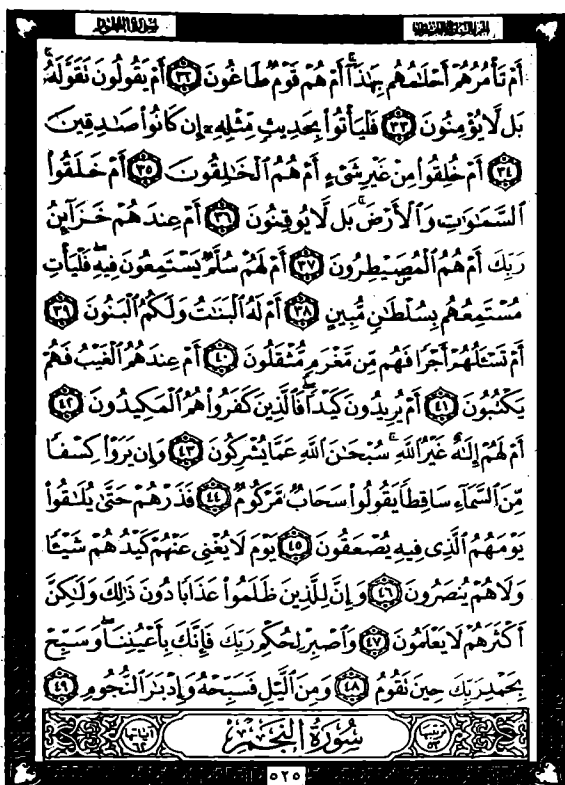 أَمْ تَأْمُرُهُمْ أَحْلَٰمُهُم بِهَٰذَآ ۚ أَمْ هُمْ قَوْمٌ طَاغُونَ ٣٢ أَمْ يَقُولُونَ تَقَوَّلَهُۥ ۚ
بَل لَّا يُؤْمِنُونَ ٣٣ فَلْيَأْتُوا۟ بِحَدِيثٍ مِّثْلِهِۦٓ إِن كَانُوا۟ صَٰدِقِينَ
٣٤ أَمْ خُلِقُوا۟ مِنْ غَيْرِ شَىْءٍ أَمْ هُمُ ٱلْخَٰلِقُونَ ٣٥ أَمْ خَلَقُوا۟
ٱلسَّمَٰوَٰتِ وَٱلْأَرْضَ ۚ بَل لَّا يُوقِنُونَ ٣٦ أَمْ عِندَهُمْ خَزَآئِنُ
رَبِّكَ أَمْ هُمُ ٱلْمُصَۣيْطِرُونَ ٣٧ أَمْ لَهُمْ سُلَّمٌ يَسْتَمِعُونَ فِيهِ ۖ فَلْيَأْتِ
مُسْتَمِعُهُم بِسُلْطَٰنٍ مُّبِينٍ ٣٨ أَمْ لَهُ ٱلْبَنَٰتُ وَلَكُمُ ٱلْبَنُونَ ٣٩
أَمْ تَسْـَٔلُهُمْ أَجْرًا فَهُم مِّن مَّغْرَمٍ مُّثْقَلُونَ ٤٠ أَمْ عِندَهُمُ ٱلْغَيْبُ فَهُمْ
يَكْتُبُونَ ٤١ أَمْ يُرِيدُونَ كَيْدًا ۖ فَٱلَّذِينَ كَفَرُوا۟ هُمُ ٱلْمَكِيدُونَ ٤٢
أَمْ لَهُمْ إِلَٰهٌ غَيْرُ ٱللَّهِ ۚ سُبْحَٰنَ ٱللَّهِ عَمَّا يُشْرِكُونَ ٤٣ وَإِن يَرَوْا۟ كِسْفًا
مِّنَ ٱلسَّمَآءِ سَاقِطًا يَقُولُوا۟ سَحَابٌ مَّرْكُومٌ ٤٤ فَذَرْهُمْ حَتَّىٰ يُلَٰقُوا۟
يَوْمَهُمُ ٱلَّذِى فِيهِ يُصْعَقُونَ ٤٥ يَوْمَ لَا يُغْنِى عَنْهُمْ كَيْدُهُمْ شَيْـًٔا
وَلَا هُمْ يُنصَرُونَ ٤٦ وَإِنَّ لِلَّذِينَ ظَلَمُوا۟ عَذَابًا دُونَ ذَٰلِكَ وَلَٰكِنَّ
أَكْثَرَهُمْ لَا يَعْلَمُونَ ٤٧ وَٱصْبِرْ لِحُكْمِ رَبِّكَ فَإِنَّكَ بِأَعْيُنِنَا ۖ وَسَبِّحْ
بِحَمْدِ رَبِّكَ حِينَ تَقُومُ ٤٨ وَمِنَ ٱلَّيْلِ فَسَبِّحْهُ وَإِدْبَٰرَ ٱلنُّجُومِ ٤٩
سُورَةُ ٱلنَّجْمِ
٥٢٥